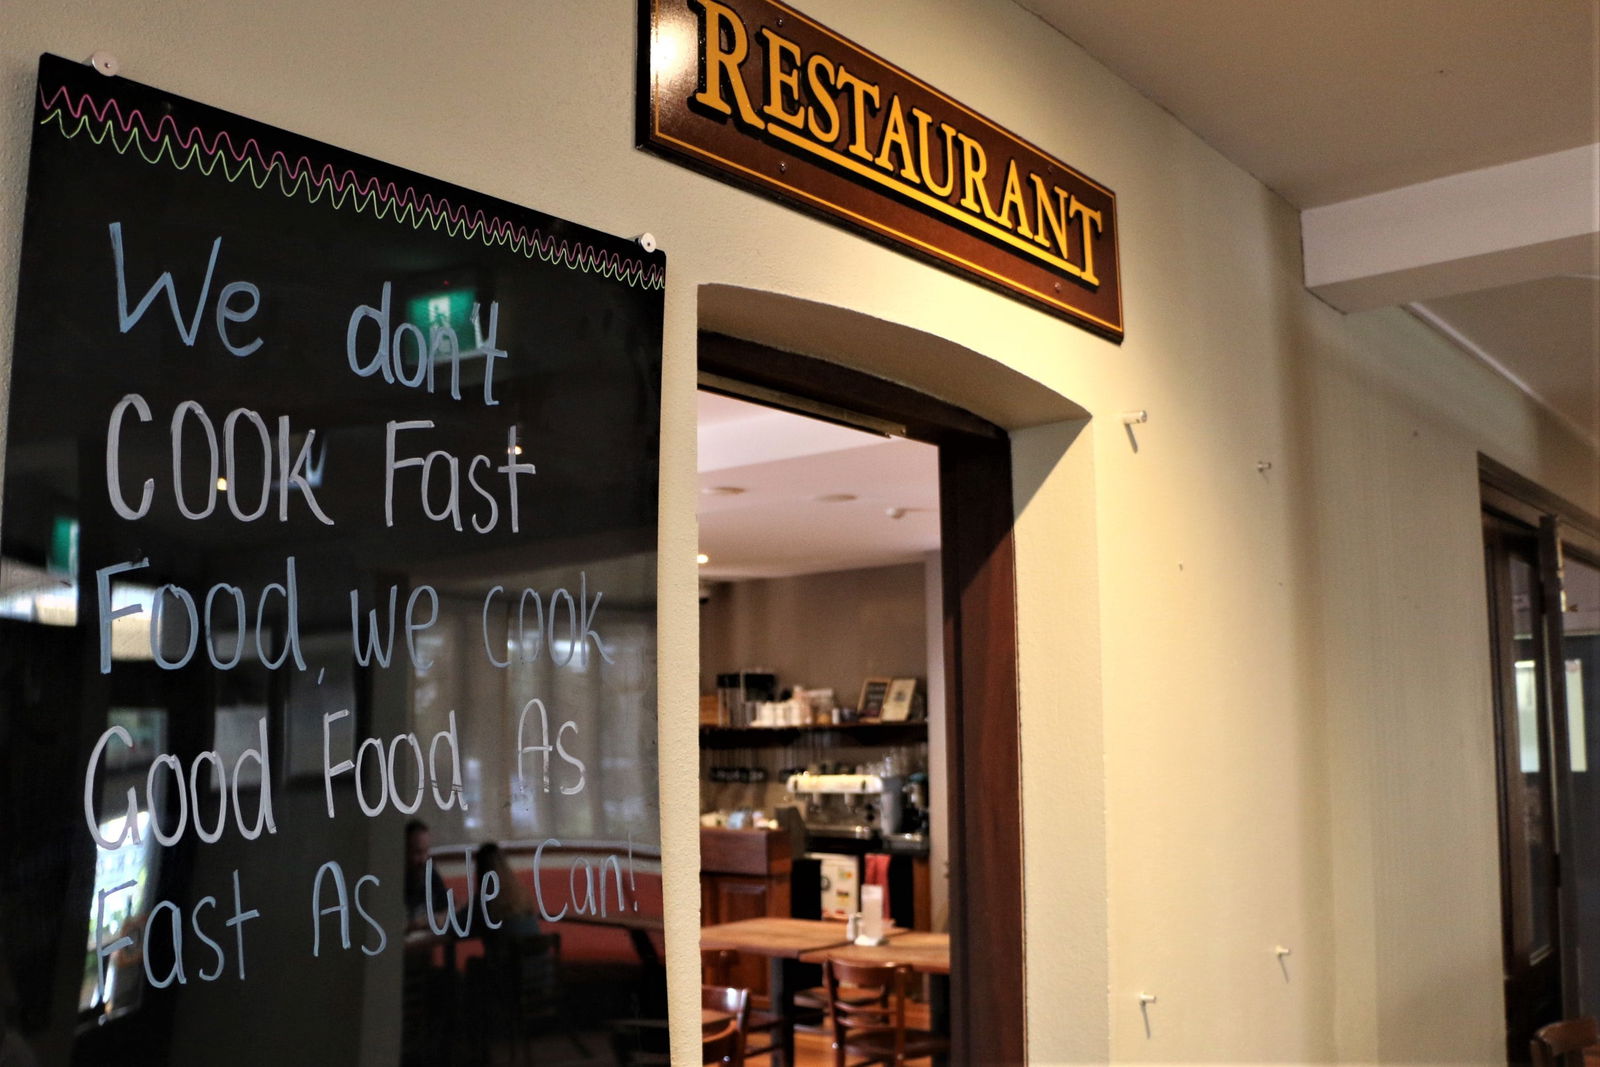 We don't
COOK Fast
Food, we cook
Good Food As
Fast As We Can!
RESTAURANT